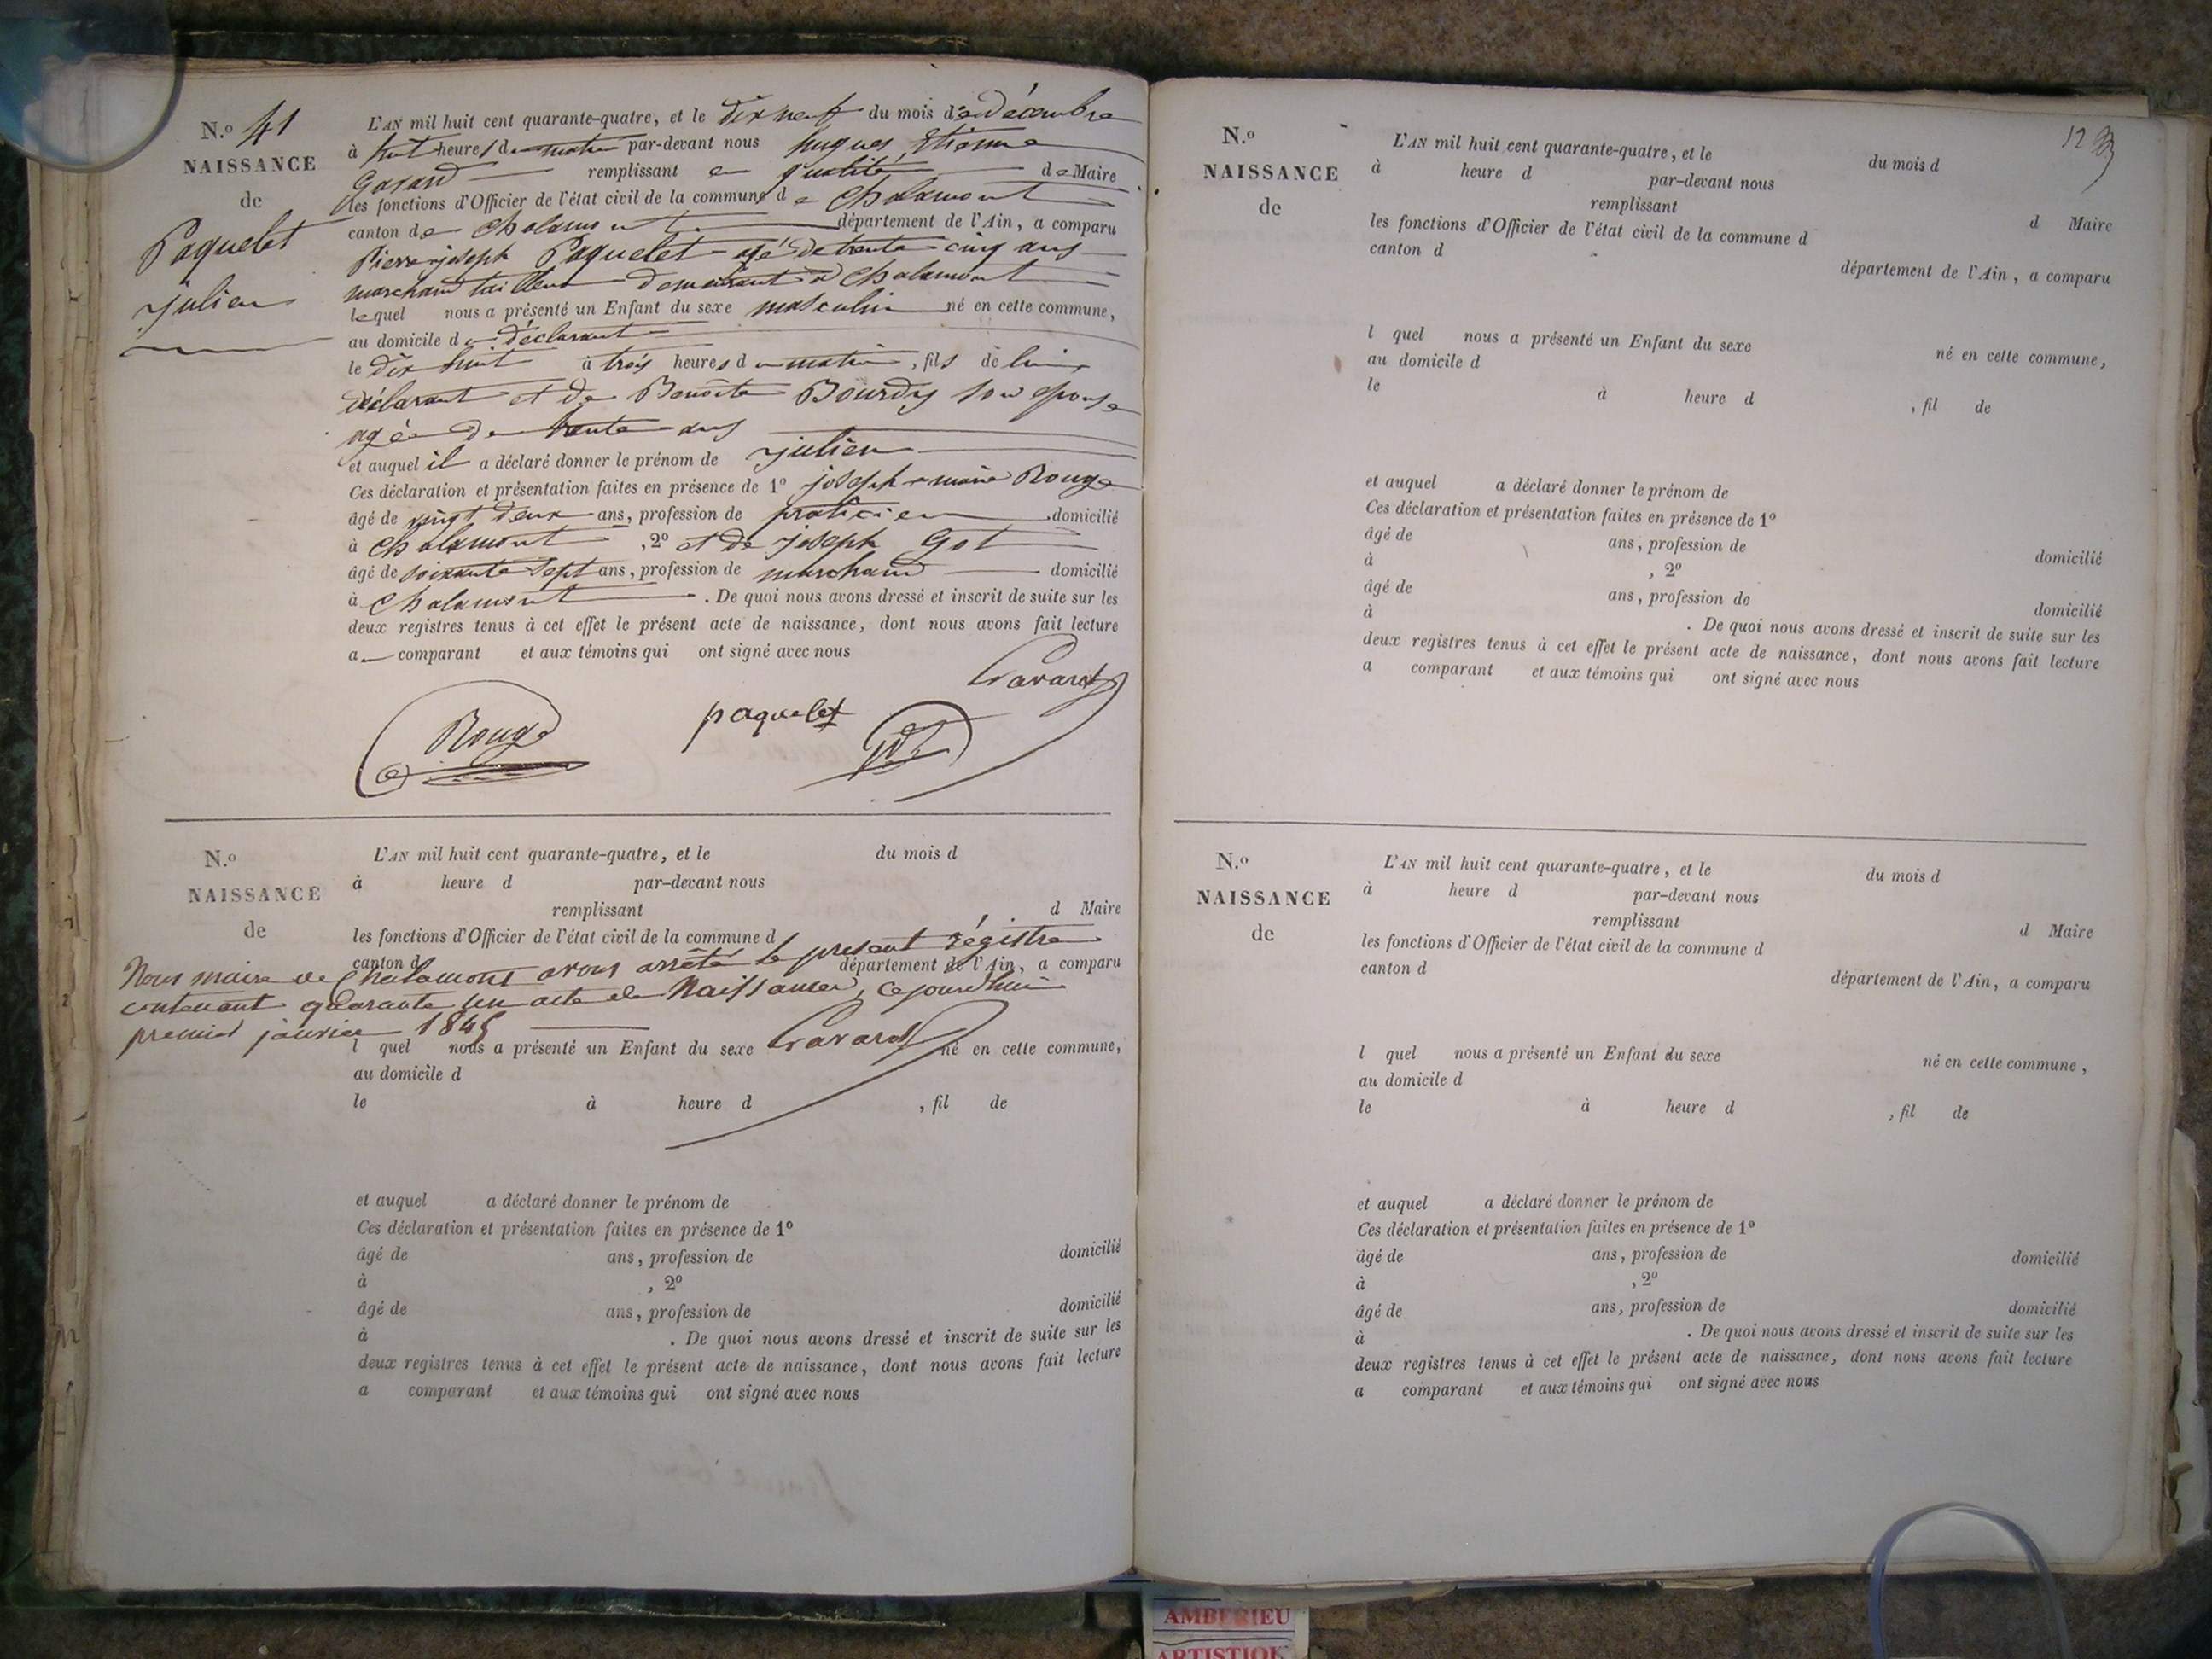 N.o 41
NAISSANCE
de
Paquelet
Julien
L'AN mil huit cent quarante-quatre, et le dix neuf du mois de décembre
à huit heures du matin par-devant nous hugues Etienne
remplissant en qualité de Maire
les fonctions d'Officier de l'état civil de la commune de Chalamont
canton de Chalamont département de l'Ain, a comparu
Pierre joseph Paquelet agé de trente cinq ans
marchand tailleur demeurant à Chalamont
lequel nous a présenté un Enfant du sexe masculin né en cette commune,
au domicile du déclarant
le dix huit à trois heures du matin, fils de lui
déclarant et de Benoite Bourdy son épouse
agée de trente ans
et auquel il a déclaré donner le prénom de julien
Ces déclaration et présentation faites en présence de 1o joseph marie Rouge
âgé de vingt deux ans, profession de praticien domicilié
à Chalamont, 2o et de joseph Got
âgé de soixante sept ans, profession de marchand domicilié
à Chalamont. De quoi nous avons dressé et inscrit de suite sur les
deux registres tenus à cet effet le présent acte de naissance, dont nous avons fait lecture
au comparant et aux témoins qui ont signé avec nous
Rouge paquelet
N.o
NAISSANCE
de
L'AN mil huit cent quarante-quatre, et le du mois d
à heure d par-devant nous
remplissant d Maire
les fonctions d'Officier de l'état civil de la commune d
canton d département de l'Ain, a comparu
Nous maire de Chalamont avons arrêté le present régistre
contenant quarante un acte de Naissance, ce jourd'hui
premier janvier 1845
l quel nous a présenté un Enfant du sexe né en cette commune,
au domicile d
le à heure d , fil de
et auquel a déclaré donner le prénom de
Ces déclaration et présentation faites en présence de 1o
âgé de ans, profession de domicilié
à , 2o
âgé de ans, profession de domicilié
à . De quoi nous avons dressé et inscrit de suite sur les
deux registres tenus à cet effet le présent acte de naissance, dont nous avons fait lecture
a comparant et aux témoins qui ont signé avec nous
12
N.o
NAISSANCE
de
L'AN mil huit cent quarante-quatre, et le du mois d
à heure d par-devant nous
remplissant d Maire
les fonctions d'Officier de l'état civil de la commune d
canton d département de l'Ain, a comparu
l quel nous a présenté un Enfant du sexe né en cette commune,
au domicile d
le à heure d , fil de
et auquel a déclaré donner le prénom de
Ces déclaration et présentation faites en présence de 1o
âgé de ans, profession de domicilié
à , 2o
âgé de ans, profession de domicilié
à . De quoi nous avons dressé et inscrit de suite sur les
deux registres tenus à cet effet le présent acte de naissance, dont nous avons fait lecture
a comparant et aux témoins qui ont signé avec nous
N.o
NAISSANCE
de
L'AN mil huit cent quarante-quatre, et le du mois d
à heure d par-devant nous
remplissant d Maire
les fonctions d'Officier de l'état civil de la commune d
canton d département de l'Ain, a comparu
l quel nous a présenté un Enfant du sexe né en cette commune,
au domicile d
le à heure d , fil de
et auquel a déclaré donner le prénom de
Ces déclaration et présentation faites en présence de 1o
âgé de ans, profession de domicilié
à , 2o
âgé de ans, profession de domicilié
à . De quoi nous avons dressé et inscrit de suite sur les
deux registres tenus à cet effet le présent acte de naissance, dont nous avons fait lecture
a comparant et aux témoins qui ont signé avec nous
AMBERIEU